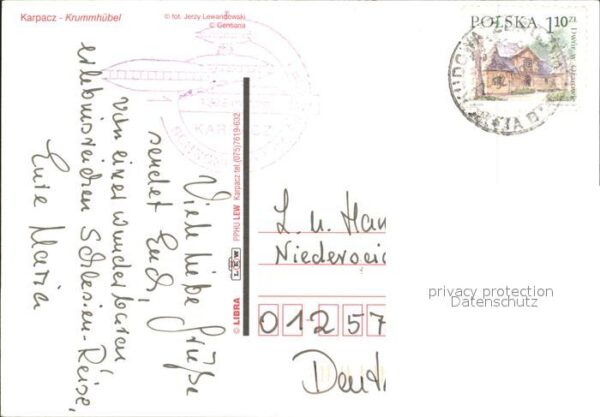 Karpacz - Krummhübel
© fot. Jerzy Lewandowski
© Gensana
POLSKA 1,10 ZŁ
KARPACZ
Viele liebe Grüße
sendet Euch,
von einer wunderbaren
erlebnisreichen Schlesien-Reise,
Eure Maria
© LIBRA
LEW
PPHU LEW Karpacz tel.(075)7619-632
L. u. Han
Niedersei
01257
Deut
privacy protection
Datenschutz